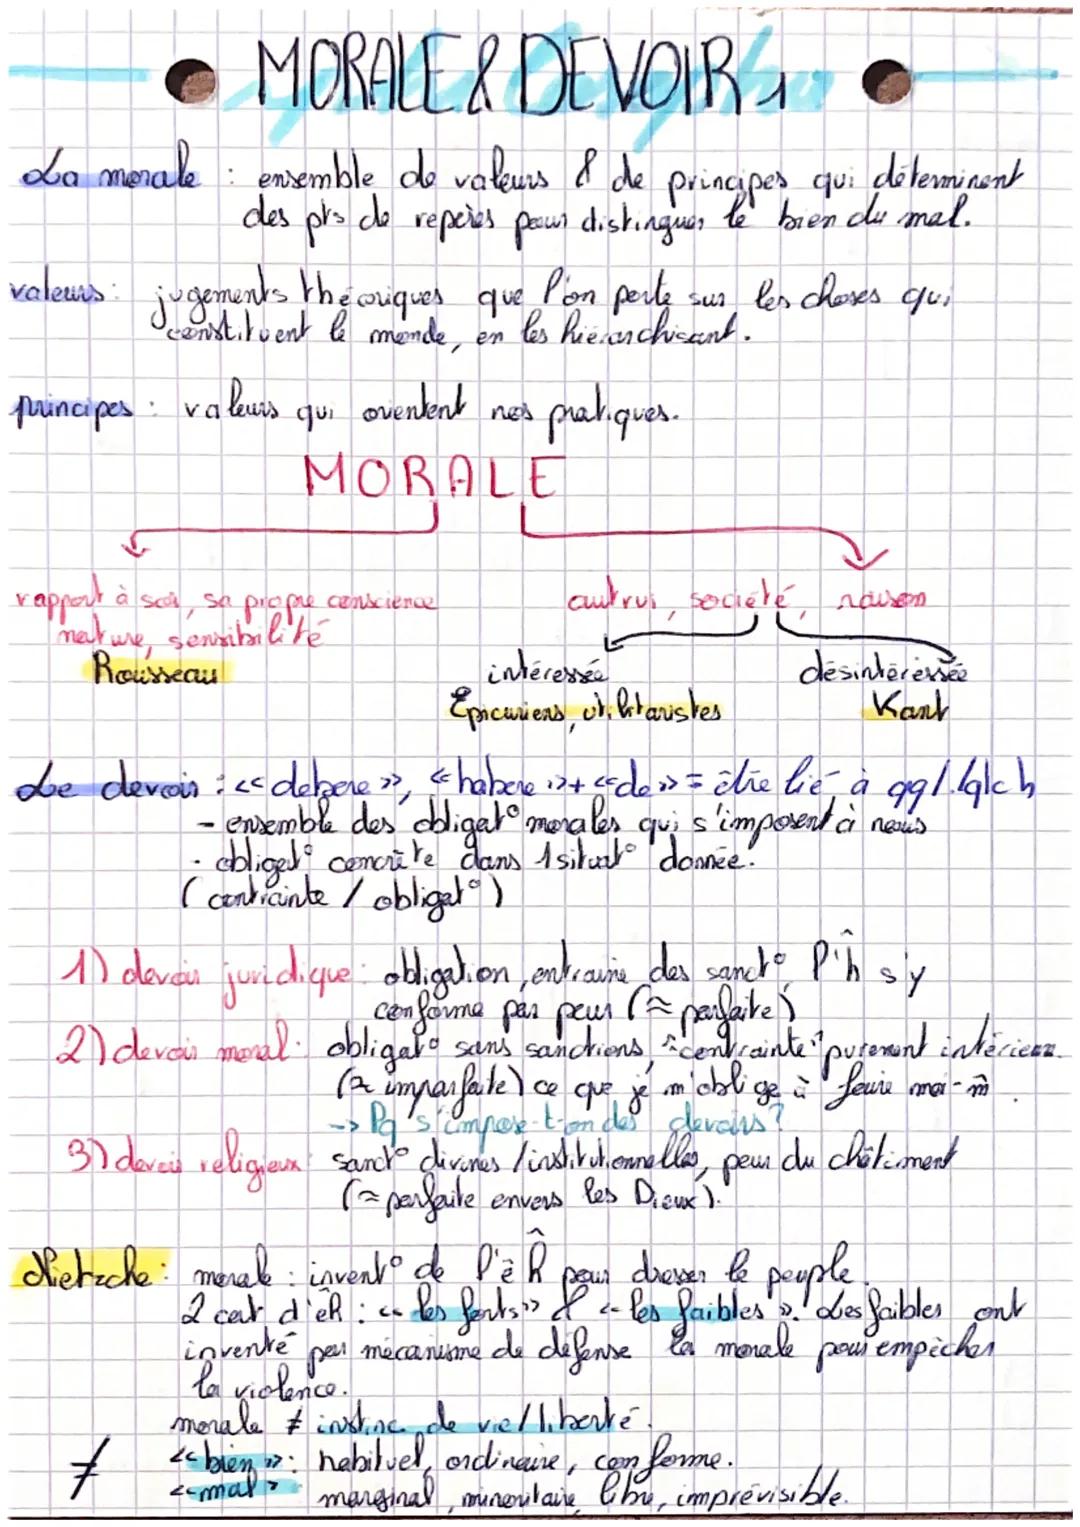 MORALE & DEVOIR 1
La morale : ensemble de valeurs & de principes qui déterminent
des pts de repères pour distinguer le bien du mal.
valeurs : jugements théoriques que l'on porte sur les choses qui
constituent le monde, en les hiérarchisant.
principes : valeurs qui orientent nos pratiques.
MORALE
rapport à soi, sa propre conscience
nature, sensibilité
Rousseau
autrui, société, raison
intéressée
Epicuriens, utilitaristes
désintéressée
Kant
Le devoir : << debere >>, << habere >> + << de >> = être lié à qq1/qlch
- ensemble des obligat° morales qui s'imposent à nous
- obligat° concrète dans 1 situat° donnée.
(contrainte / obligat°)
1) devoir juridique : obligation, entraine des sanct°, l'ĥ s'y
conforme par peur (≈ parfaite)
2) devoir moral : obligat° sans sanctions, "contrainte" purement intérieur.
(≈ imparfaite) ce que je m'oblige à faire moi-m̂
-> Pq s'impose-t-on des devoirs ?
3) devoir religieux : sanct° divines / institutionnelles, peur du châtiment
(≈ parfaite envers les Dieux).
Nietzche : morale : invent° de l'ê ĥ pour dresser le peuple.
2 cat d'êh : << les forts >> & << les faibles >>. Les faibles ont
inventé par mécanisme de défense la morale pour empêcher
la violence.
morale ≠ instinc de vie / liberté.
≠ << bien >> : habituel, ordinaire, conforme.
<< mal > marginal, minoritaire, libre, imprévisible.